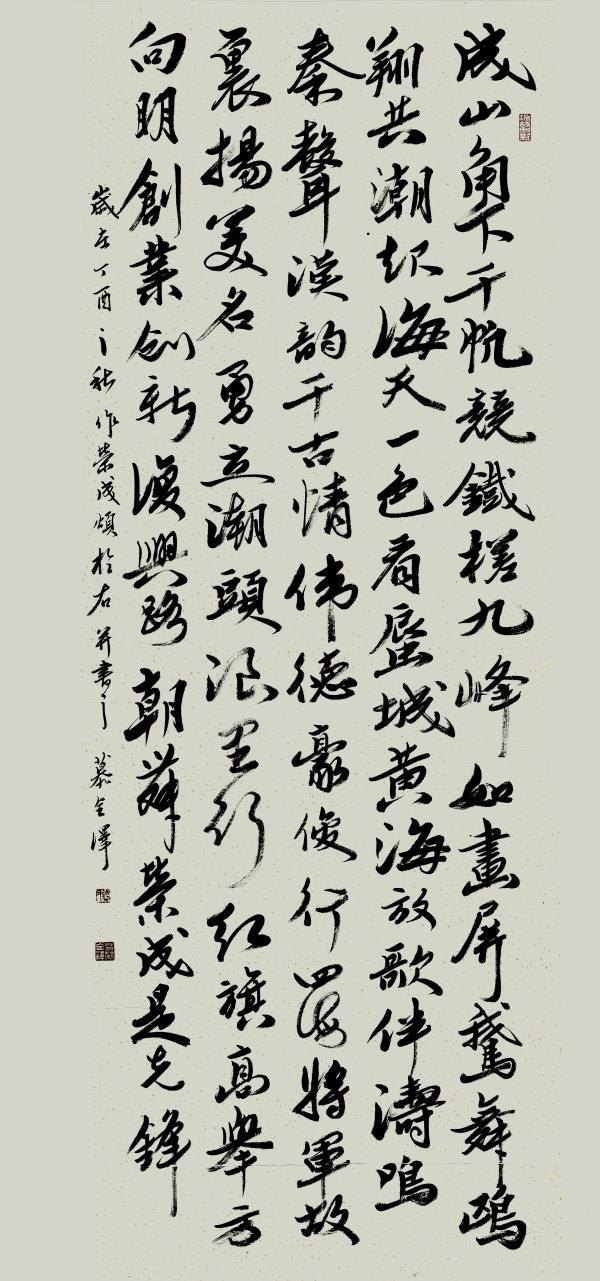 成山角下千帆競鐵槎九峰如畫屏鵞舞鷗
翔共潮起海天一色看蜃城黃海放歌伴濤鳴
秦聲漢韵千古情偉德豪俊行四海將軍故
裏揚美名勇立潮頭浪里行紅旗高舉方
向明創業創新復興路朝舞榮成是先鋒
歲在丁酉之秋作榮成頌於右并書之 慕全澤